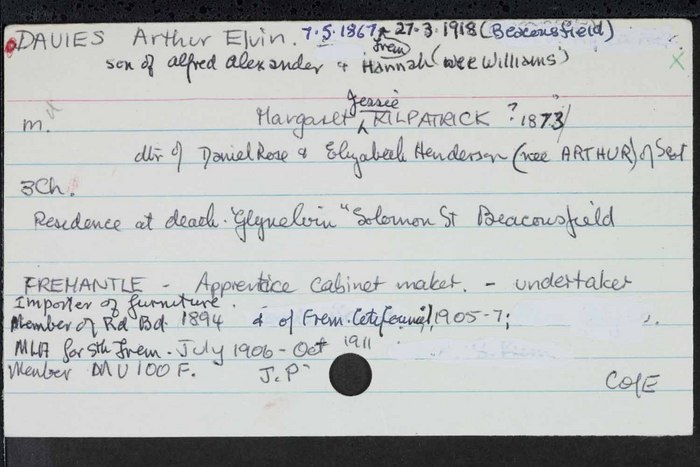 DAVIES Arthur Elvin. 7.5.1867 27.3.1918 (Beaconsfield)
Frem
son of Alfred Alexander & Hannah (nee Williams)
Jessie
m. Margaret KILPATRICK ? 1873/
dtr of Daniel Rose & Elizabeth Henderson (nee ARTHUR) of Scot
3Ch.
Residence at death. "Glynelvin" Solomon St Beaconsfield
FREMANTLE - Apprentice cabinet maker. - undertaker
Importer of furniture.
Member of Rd Bd. 1894 & of Frem. Council, 1905-7;
MLA for Sth Frem. July 1906 - Oct 1911
Member MU100F. J.P.
CofE